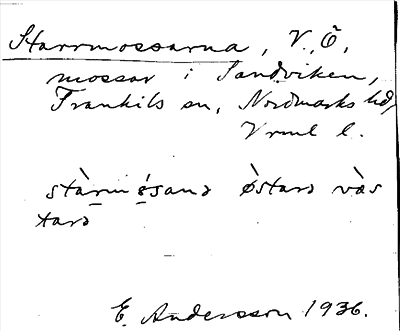 Starrmossarna, V., Ö,
mossar i Sandviken,
Frankils sn, Nordmarks hd,
Vrml l.
stàrmǿsanɔ òstarɔ vàs
tarɔ
E. Andersson 1936.